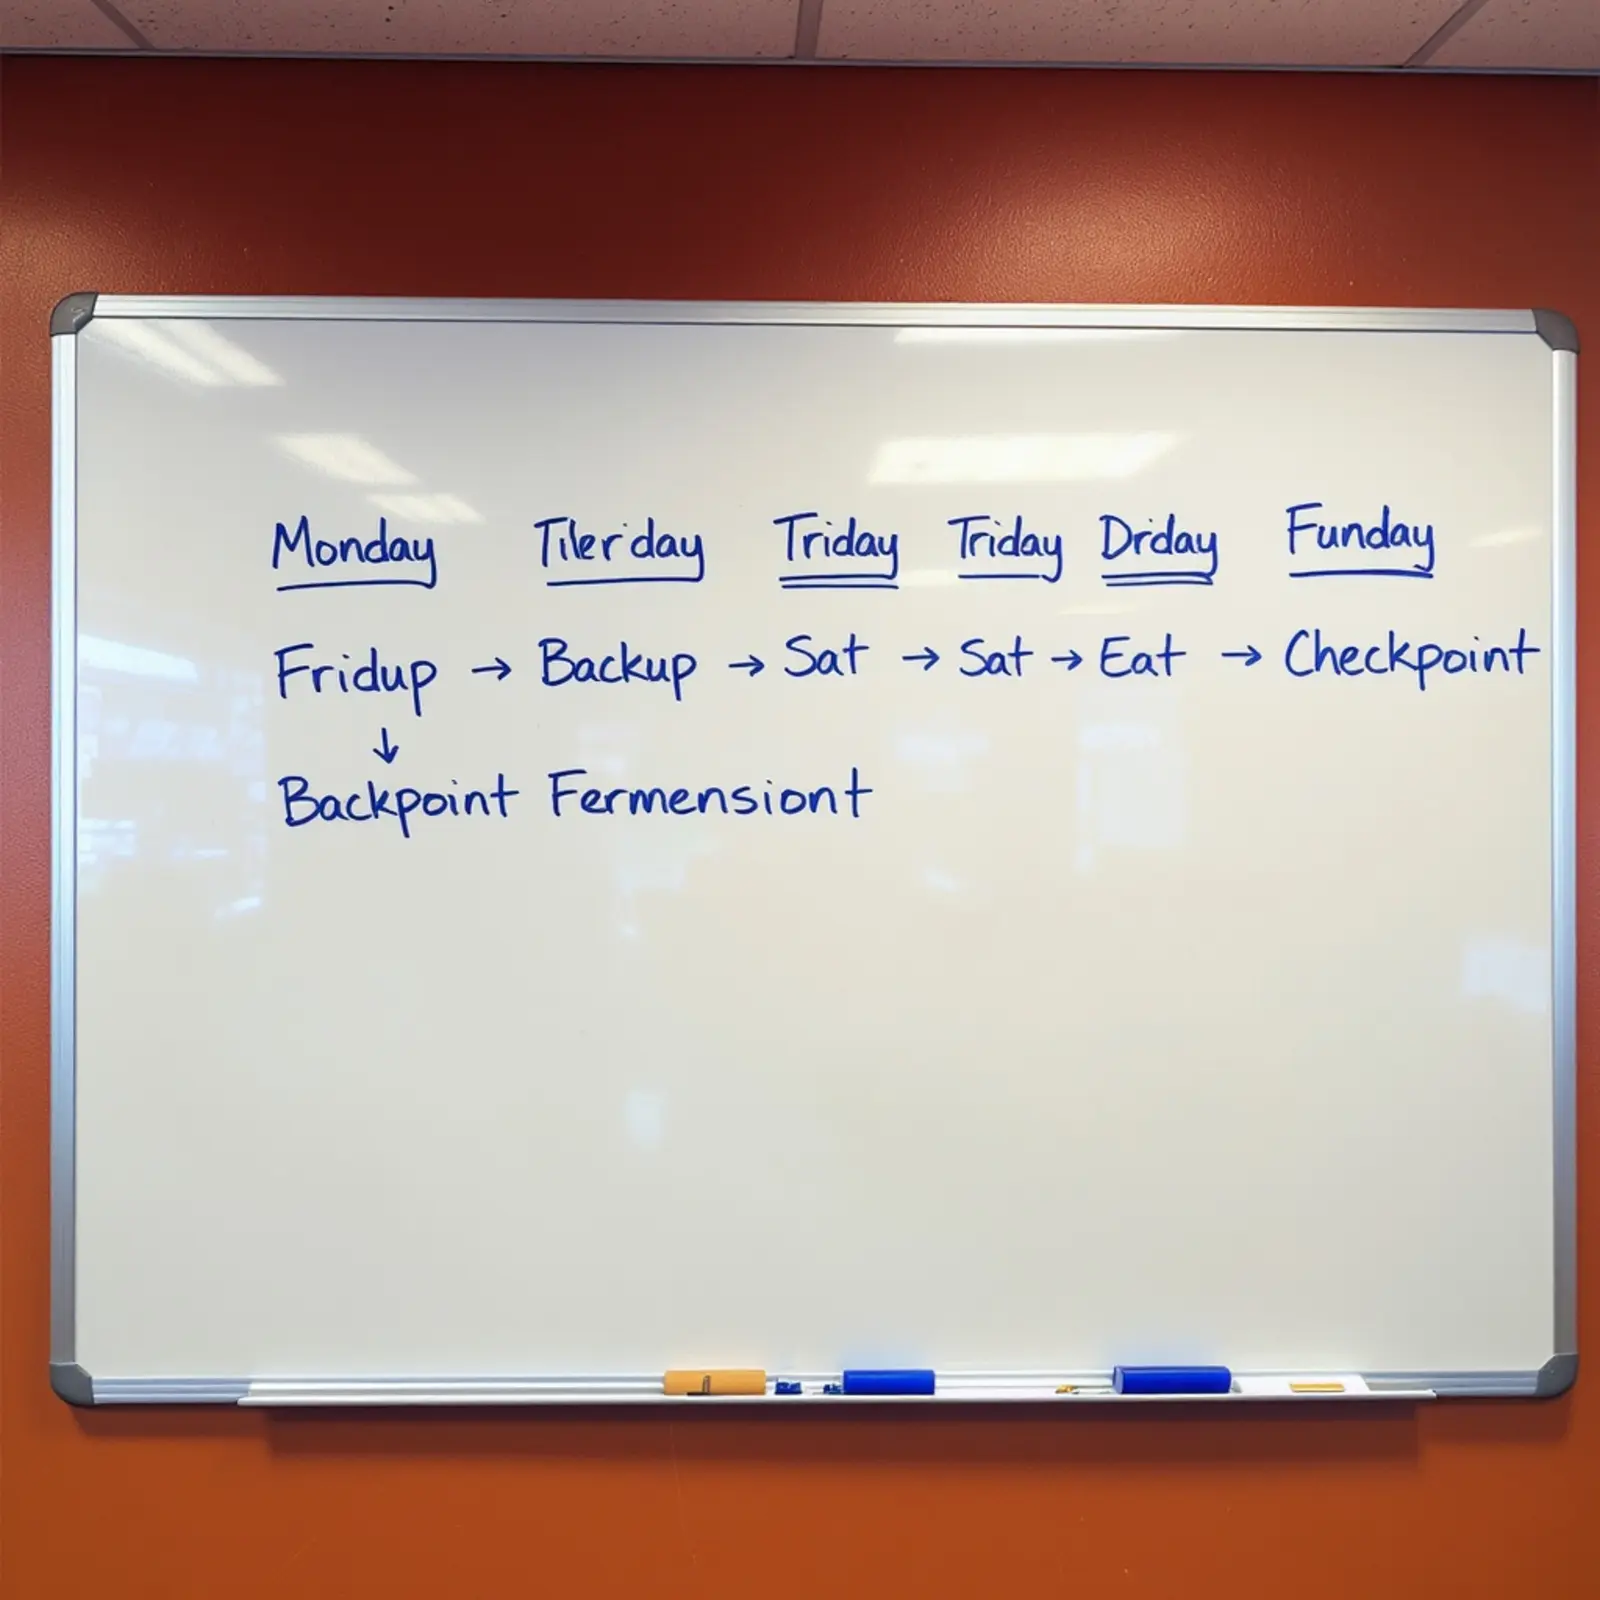 Monday Tilerday Triday Triday Drday Funday
Fridup → Backup → Sat → Sat → Eat → Checkpoint
↓
Backpoint Fermensiont